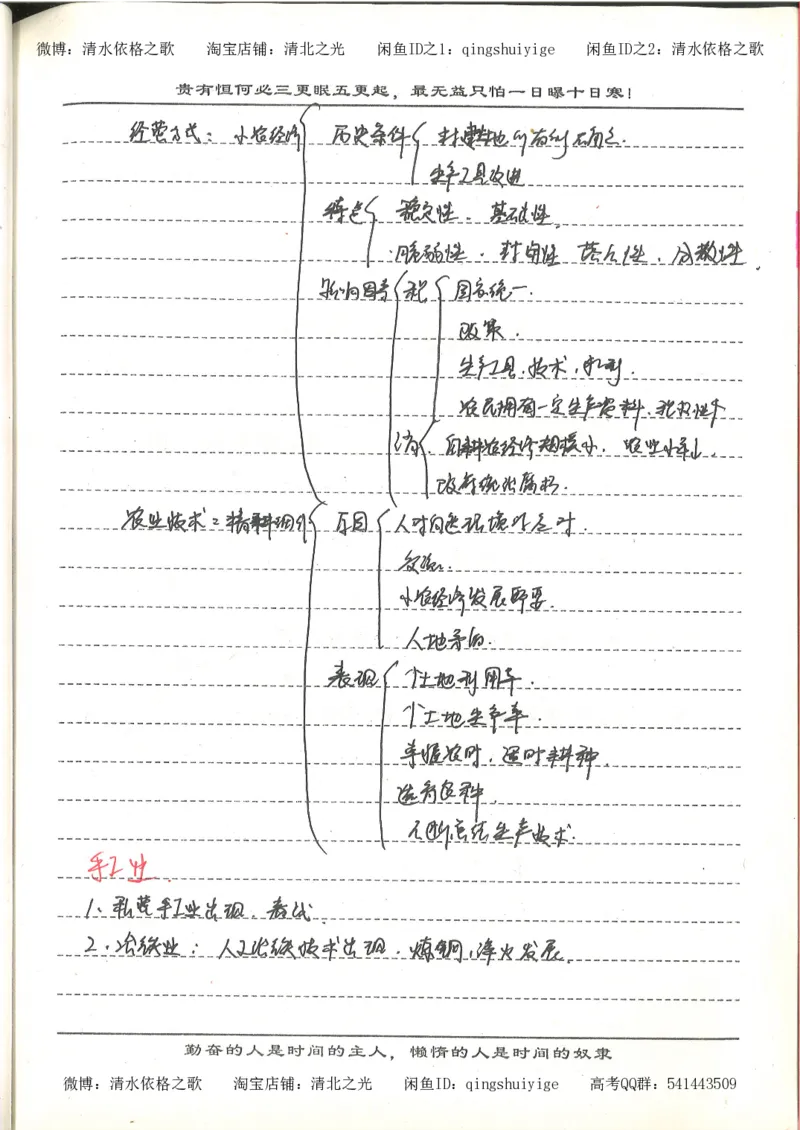 微博：清水依格之歌 淘宝店铺：清北之光 闲鱼ID之1：qingshuiyige 闲鱼ID之2：清水依格之歌
贵有恒何必三更眠五更起，最无益只怕一日曝十日寒！
经营方式：小农经济 历史条件 封建土地所有制确立.
生产工具改进
特点 稳定性、基础性.
脆弱性、封闭性 落后性、分散性.
影响因素 积 国家统一.
政策.
生产工具、技术、水利.
农民拥有一定生产资料、积极性个
消 自耕农经济规模小.
政府统治腐朽.
农业技术：精耕细作 原因 人对自然环境的应对.
小农经济发展需要.
人地矛盾.
表现 个土地利用率.
个土地生产率.
掌握农时，适时耕种.
选育良种.
不断总结生产技术.
手工业.
1、私营手工业出现.
2、冶铁业：人工冶铁技术出现.炼钢,淬火发展.
勤奋的人是时间的主人，懒惰的人是时间的奴隶
微博：清水依格之歌 淘宝店铺：清北之光 闲鱼ID：qingshuiyige 高考QQ群：541443509